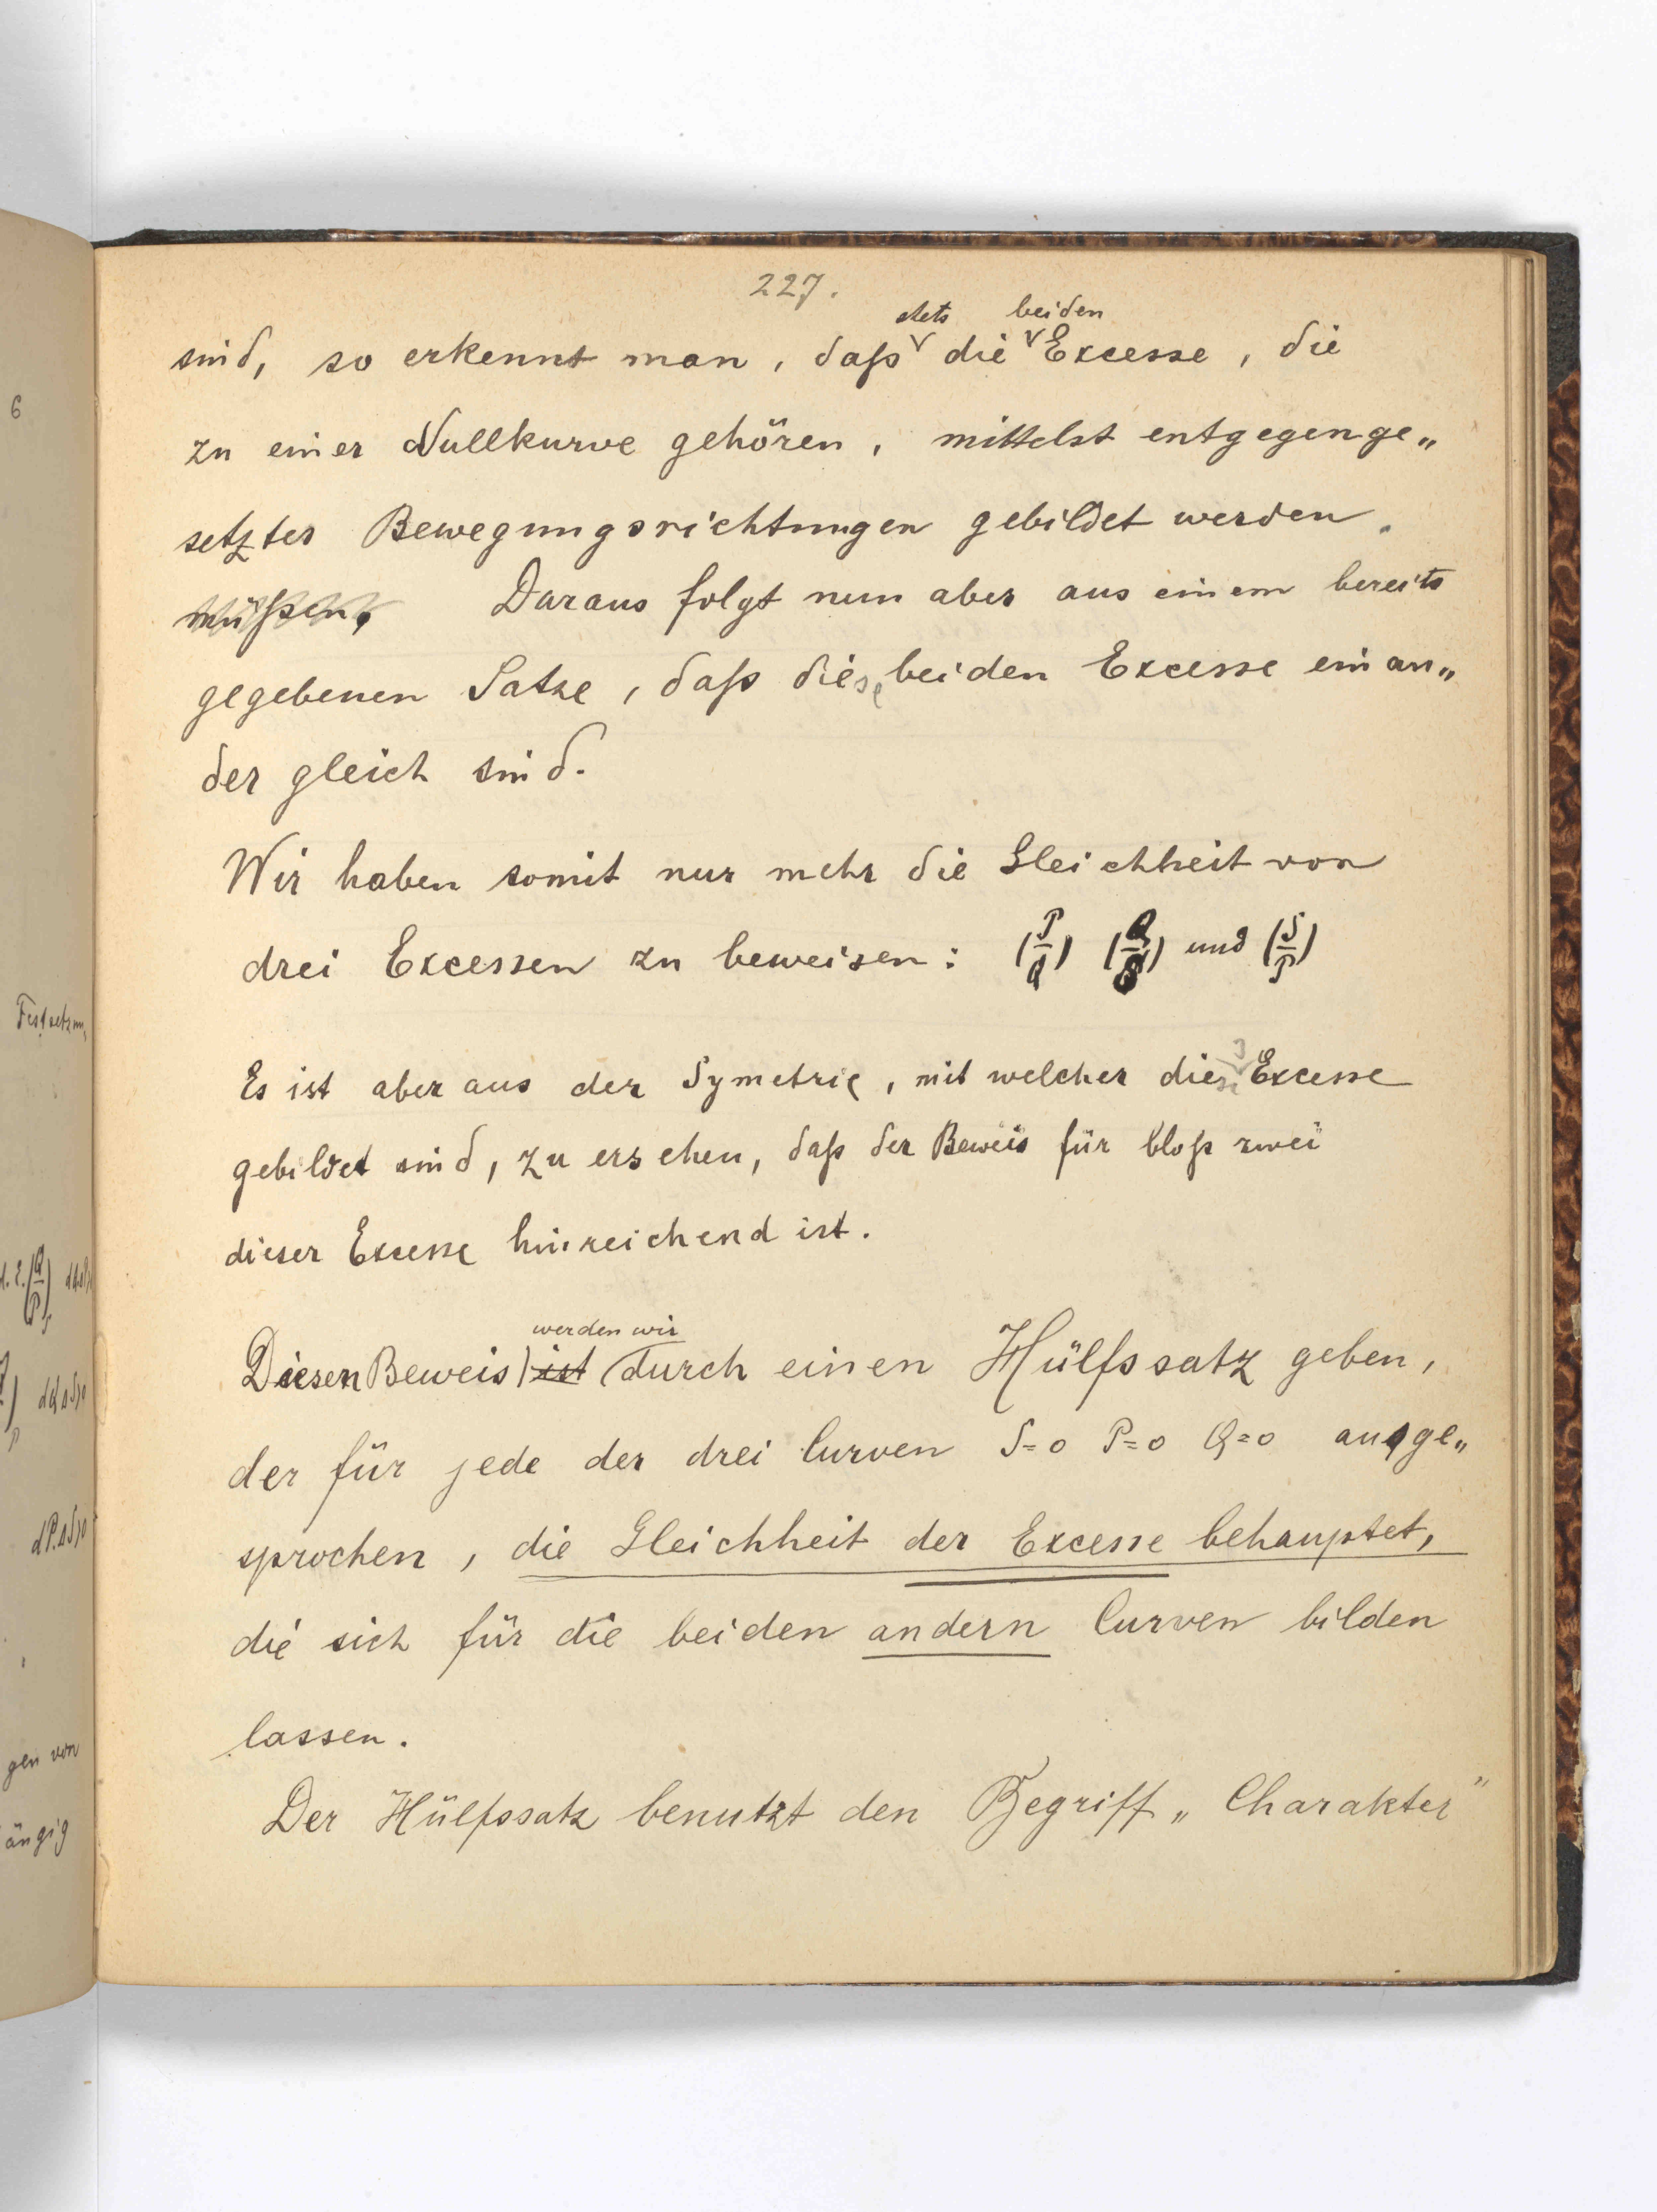 227.
stets beiden
sind, so erkennt man, daſs die Excesse, die
zu einer Nullkurve gehören, mittelst entgegenge„
setzter Bewegungsrichtungen gebildet werden.
müſsen, Daraus folgt nun aber aus einem bereits
gegebenen Satze, daſs diese beiden Excesse einan„
der gleich sind.
Wir haben somit nur mehr die Gleichheit von
drei Excessen zu beweisen: (P/Q) (Q/S) und (S/P)
3
Es ist aber aus der Symetrie, mit welcher diese Excesse
gebildet sind, zu ersehen, daſs der Beweis für bloſs zwei
dieser Excesse hinreichend ist.
werden wir
Diesen Beweis ist durch einen Hülfssatz geben,
der für jede der drei Curven S=0 P=0 Q=0 ausge„
sprochen, die Gleichheit der Excesse behauptet,
die sich für die beiden andern Curven bilden
lassen.
Der Hülfssatz benutzt den Begriff „Charakter"
6
Festsetzun
gen von
ängig